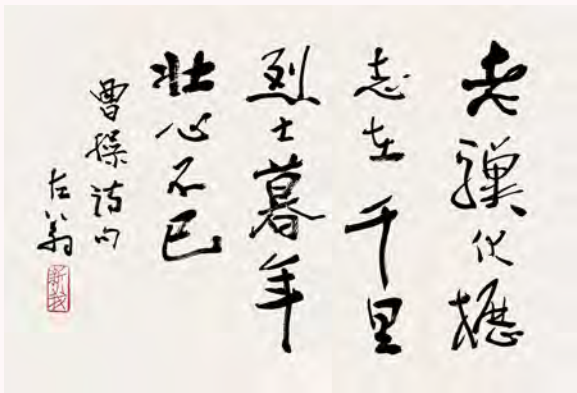 老驥伏櫪
志在千里
烈士暮年
壮心不已
曹操詩句
左翁